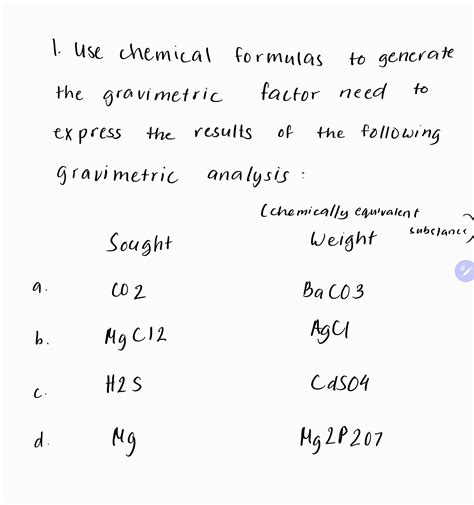 1. Use chemical formulas to generate
the gravimetric factor need to
express the results of the following
gravimetric analysis :
(chemically equivalent
substance)
Sought Weight
a. CO2 BaCO3
b. MgCl2 AgCl
c. H2S CdSO4
d. Mg Mg2P2O7